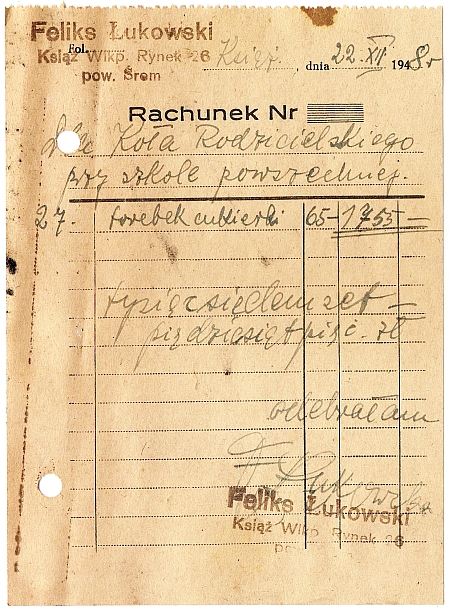 Feliks Łukowski
Fol.
Książ Wlkp. Rynek 26 Książ, dnia 22.XII 1948 r
pow. Śrem
Rachunek Nr
Dla Koła Rodzicielskiego
przy szkole powszechnej.
27. torebek cukierki 65- 1755-
tysiąc siedemset -
pięćdziesiąt pięć. zł
odebrałam
F Łukowska
Feliks Łukowski
Książ Wlkp. Rynek 26